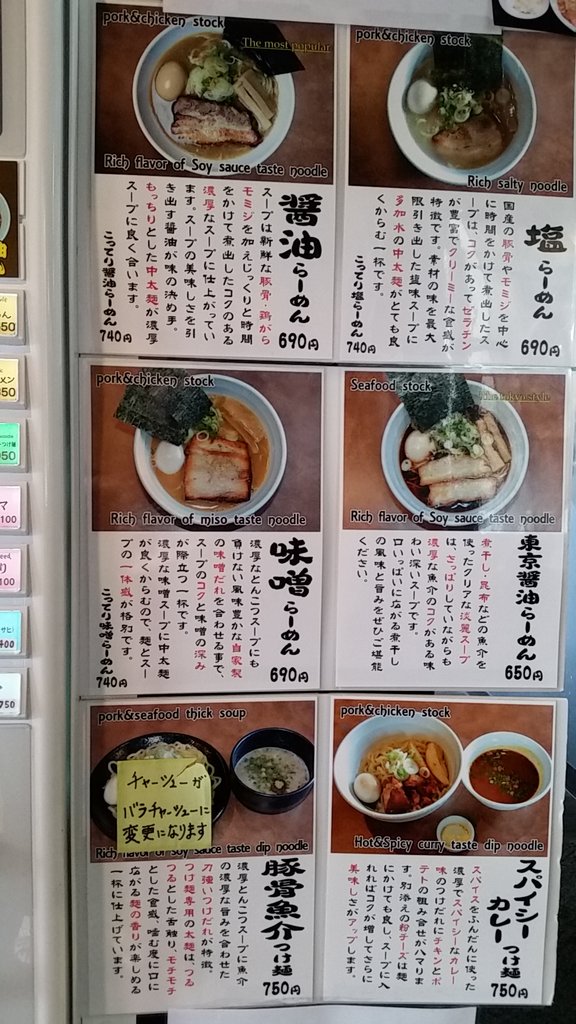 pork&chicken stock
The most popular
Rich flavor of Soy sauce taste noodle
醤油らーめん
690円
スープは新鮮な豚骨・鶏がら
モミジを加えじっくりと時間
をかけて煮出したコクのある
濃厚なスープに仕上がってい
ます。スープの美味しさを引
き出す醤油が味の決め手。
もっちりとした中太麺が濃厚
スープに良く合います。
こってり醤油らーめん
740円
pork&chicken stock
Rich salty noodle
塩らーめん
690円
国産の豚骨やモミジを中心
に時間をかけて煮出したス
ープは、コクがあってゼラチン
が豊富でクリーミーな食感が
特徴です。素材の味を最大
限引き出した塩味スープに
多加水の中太麺がとても良
くからむ一杯です。
こってり塩らーめん
740円
pork&chicken stock
Rich flavor of miso taste noodle
味噌らーめん
690円
濃厚なとんこつスープにも
負けない風味豊かな自家製
の味噌だれを合わせる事で、
スープのコクと味噌の深み
が際立つ一杯です。
濃厚な味噌スープに中太麺
が良くからむので、麺とスー
プの一体感が格別です。
こってり味噌らーめん
740円
Seafood stock
The tokyo style
Rich flavor of Soy sauce taste noodle
東京醤油らーめん
650円
煮干し、昆布などの魚介を
使ったクリアな淡麗スープ
は、さっぱりしていながらも
濃厚な魚介のコクがある味
わい深いスープです。
口いっぱいに広がる煮干し
の風味と旨みをぜひご堪能
ください。
pork&seafood thick soup
チャーシューが
バラチャーシューに
変更になります
Rich flavor of soy sauce taste dip noodle
豚骨魚介つけ麺
750円
濃厚とんこつスープに魚介
の濃厚な旨みを合わせた
力強いつけだれが特徴。
つけ麺専用の太麺は、つる
つるとした舌触り、モチモチ
とした食感、噛む度に口に
広がる麺の香りが楽しめる
一杯に仕上げています。
pork&chicken stock
Hot&Spicy curry taste dip noodle
スパイシーカレーつけ麺
750円
スパイスをふんだんに使った
濃厚でスパイシーなカレー
味のつけだれにチキンとポ
テトの組み合せがハマりま
す。別添えの粉チーズは麺
にかけても良し、スープに入
れればコクが増してさらに
美味しさがアップします。